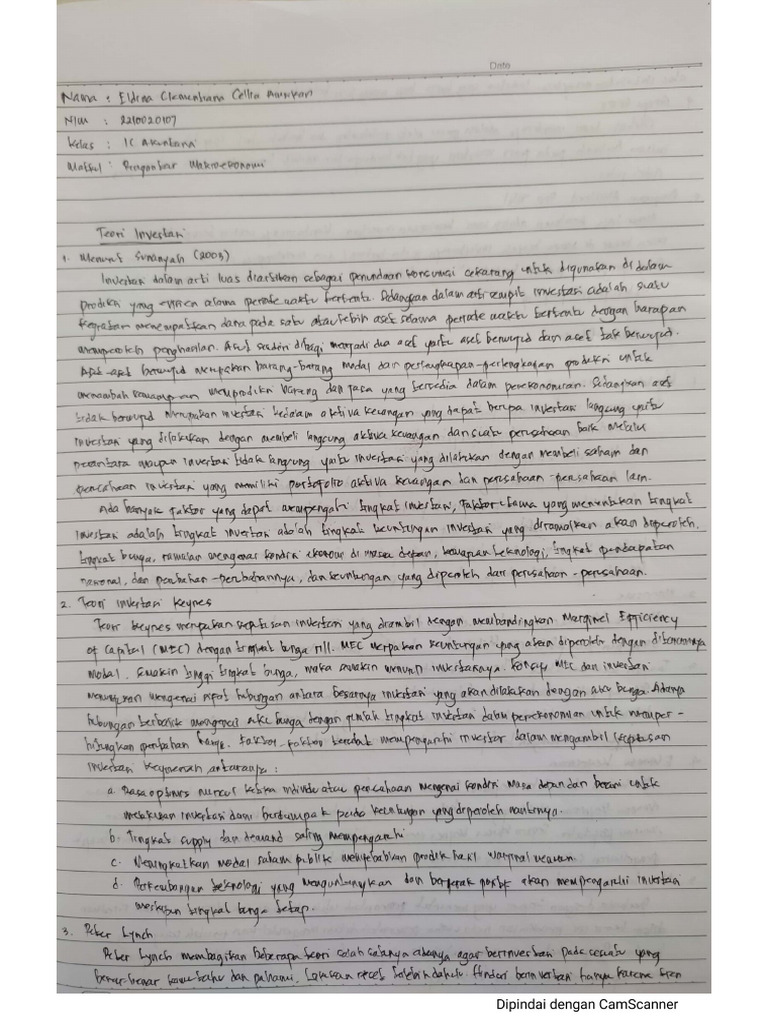 Date
Nama : Eldina Clementiana Cellia
NIM : 2210020107
Kelas : 1C Akuntansi
Matkul : Pengantar Makroekonomi
Teori Investasi
1. Menurut Sunariyah (2003)
Investasi dalam arti luas diartikan sebagai penundaan konsumsi sekarang untuk digunakan di dalam
produksi yang efisien selama periode waktu tertentu. Sedangkan dalam arti sempit investasi adalah suatu
kegiatan menempatkan dana pada satu atau lebih aset selama periode waktu tertentu dengan harapan
memperoleh penghasilan. Aset sendiri dibagi menjadi dua aset yaitu aset berwujud dan aset tak berwujud.
Aset-aset berwujud merupakan barang-barang modal dan perlengkapan-perlengkapan produksi untuk
menambah kemampuan memproduksi barang dan jasa yang tersedia dalam perekonomian. Sedangkan aset
tidak berwujud merupakan investasi kedalam aktiva keuangan yang dapat berupa investasi langsung yaitu
investasi yang dilakukan dengan membeli langsung aktiva keuangan dari suatu perusahaan baik melalui
perantara maupun investasi tidak langsung yaitu investasi yang dilakukan dengan membeli saham dari
perusahaan investasi yang memiliki portofolio aktiva keuangan dari perusahaan-perusahaan lain.
Ada banyak faktor yang dapat mempengaruhi tingkat investasi, faktor utama yang menentukan tingkat
investasi adalah tingkat investasi adalah tingkat keuntungan investasi yang diramalkan akan diperoleh,
tingkat bunga, ramalan mengenai kondisi ekonomi di masa depan, kemajuan teknologi, tingkat pendapatan
nasional, dan perubahan-perubahannya, dan keuntungan yang diperoleh dari perusahaan-perusahaan.
2. Teori Investasi Keynes
Teori Keynes merupakan keputusan investasi yang diambil dengan membandingkan Marginel Efficiency
of Capital (MEC) dengan tingkat bunga riil. MEC merupakan keuntungan yang akan diperoleh dengan ditanamnya
modal. Semakin tinggi tingkat bunga, maka semakin menurun investasinya. Konsep MEC dan investasi
mengenai sifat hubungan antara besarnya investasi yang akan dilakukan dengan suku bunga. Adanya
hubungan terbalik mengenai suku bunga dengan jumlah tingkat investasi dalam perekonomian untuk memper-
hitungkan perubahan harga. Faktor-faktor tersebut mempengaruhi investor dalam mengambil keputusan
investasi Keynesian antaranya :
a. Rasa optimis muncul ketika individu atau perusahaan mengenai kondisi masa depan dan berani untuk
melakukan investasi dan berdampak pada keuntungan yang diperoleh nantinya.
b. Tingkat supply dan demand saling mempengaruhi
c. Meningkatkan modal saham publik menyebabkan produk hasil marginal menurun
d. Perkembangan teknologi yang menguntungkan dan bergerak positif akan mempengaruhi investasi
meskipun tingkat bunga tetap.
3. Peter Lynch
Peter Lynch membagikan beberapa teori salah satunya adanya agar berinvestasi pada sesuatu yang
benar-benar kamu tahu dan pahami, lakukan riset terlebih dahulu. Hindari berinvestasi hanya karena tren
Dipindai dengan CamScanner